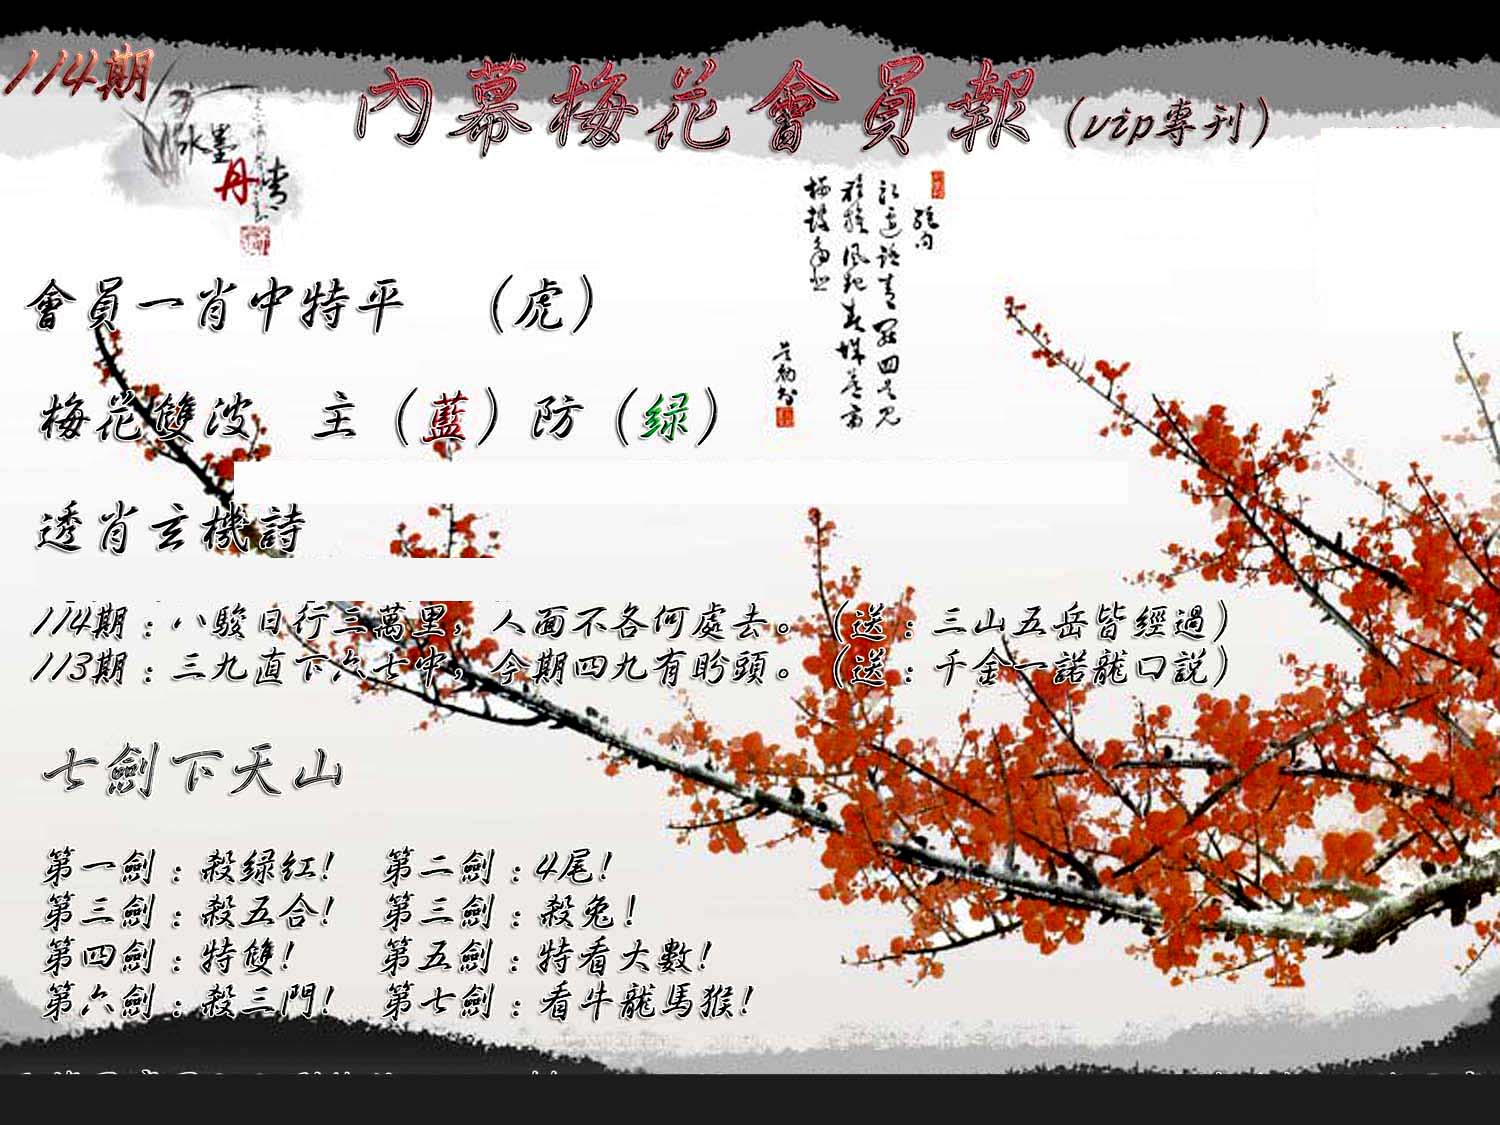 114期
內幕梅花會員報（vip專刊）
水墨
丹青
會員一肖中特平　（虎）
梅花雙波　主（藍）防（绿）
透肖玄機詩
114期：八駿日行三萬里，人面不各何處去。（送：三山五岳皆經過）
113期：三九直下六七中，今期四九有盼頭。（送：千金一諾龍口説）
七劍下天山
第一劍：殺绿红！　第二劍：4尾！
第三劍：殺五合！　第三劍：殺兔！
第四劍：特雙！　第五劍：特看大數！
第六劍：殺三門！　第七劍：看牛龍馬猴！